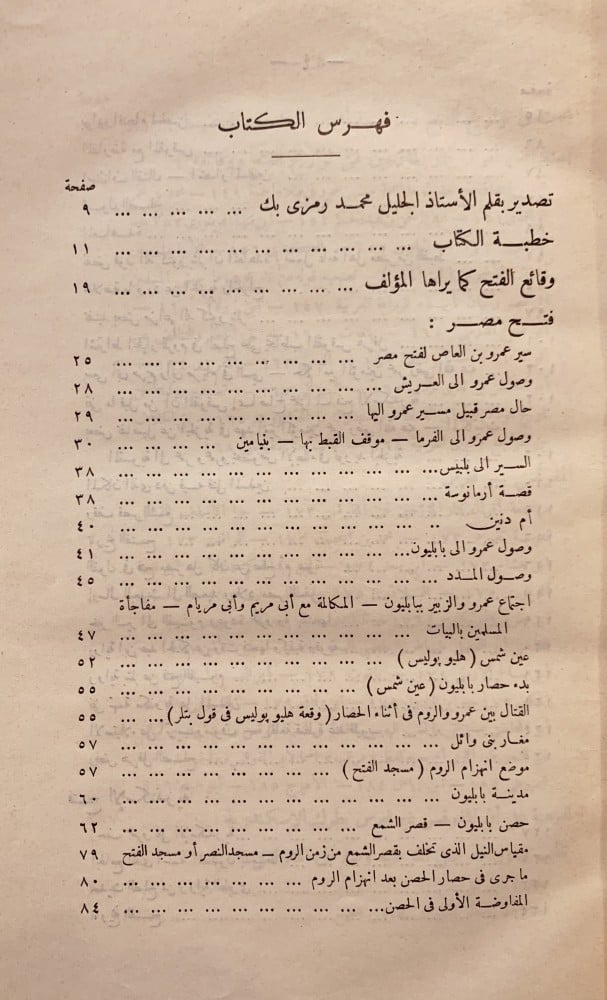 فهرس الكتاب
صفحة
تصدير بقلم الأستاذ الجليل محمد رمزى بك ... ... ... ... ٩
خطبة الكتاب ... ... ... ... ... ... ... ... ... ... ١١
وقائع الفتح كما يراها المؤلف ... ... ... ... ... ... ... ... ١٩
فتح مصر :
سير عمرو بن العاص لفتح مصر ... ... ... ... ... ... ... ... ٢٥
وصول عمرو الى العريش ... ... ... ... ... ... ... ... ... ٢٨
حال مصر قبيل مسير عمرو اليها ... ... ... ... ... ... ... ... ٢٩
وصول عمرو الى الفرما — موقف القبط بها — بنيامين ... ... ... ... ٣٠
السير الى بلبيس ... ... ... ... ... ... ... ... ... ... ... ٣٨
قصة أرمانوسة ... ... ... ... ... ... ... ... ... ... ... ٣٨
أم دنين ... ... ... ... ... ... ... ... ... ... ... ٤٠
وصول عمرو الى بابليون ... ... ... ... ... ... ... ... ... ... ٤١
وصول المدد ... ... ... ... ... ... ... ... ... ... ... ٤٥
اجتماع عمرو والزبير ببابليون — المكالمة مع أبى مريم وأبى مريام — مفاجأة
المسلمين بالبيات ... ... ... ... ... ... ... ... ... ٤٧
عين شمس ( هليو پوليس ) ... ... ... ... ... ... ... ... ... ٥٢
بدء حصار بابليون ( عين شمس ) ... ... ... ... ... ... ... ... ٥٥
القتال بين عمرو والروم فى أثناء الحصار ( وقعة هليو پوليس فى قول بتلر ) ... ... ٥٥
مغار بنى وائل ... ... ... ... ... ... ... ... ... ... ... ٥٧
موضع انهزام الروم ( مسجد الفتح ) ... ... ... ... ... ... ... ٥٧
مدينة بابليون ... ... ... ... ... ... ... ... ... ... ... ٦٠
حصن بابليون — قصر الشمع ... ... ... ... ... ... ... ... ٦٢
مقياس النيل الذى تخلف بقصر الشمع من زمن الروم — مسجد النصر أو مسجد الفتح ٧٩
ما جرى فى حصار الحصن بعد انهزام الروم ... ... ... ... ... ... ٨٠
المفاوضة الأولى فى الحصن ... ... ... ... ... ... ... ... ... ٨٤